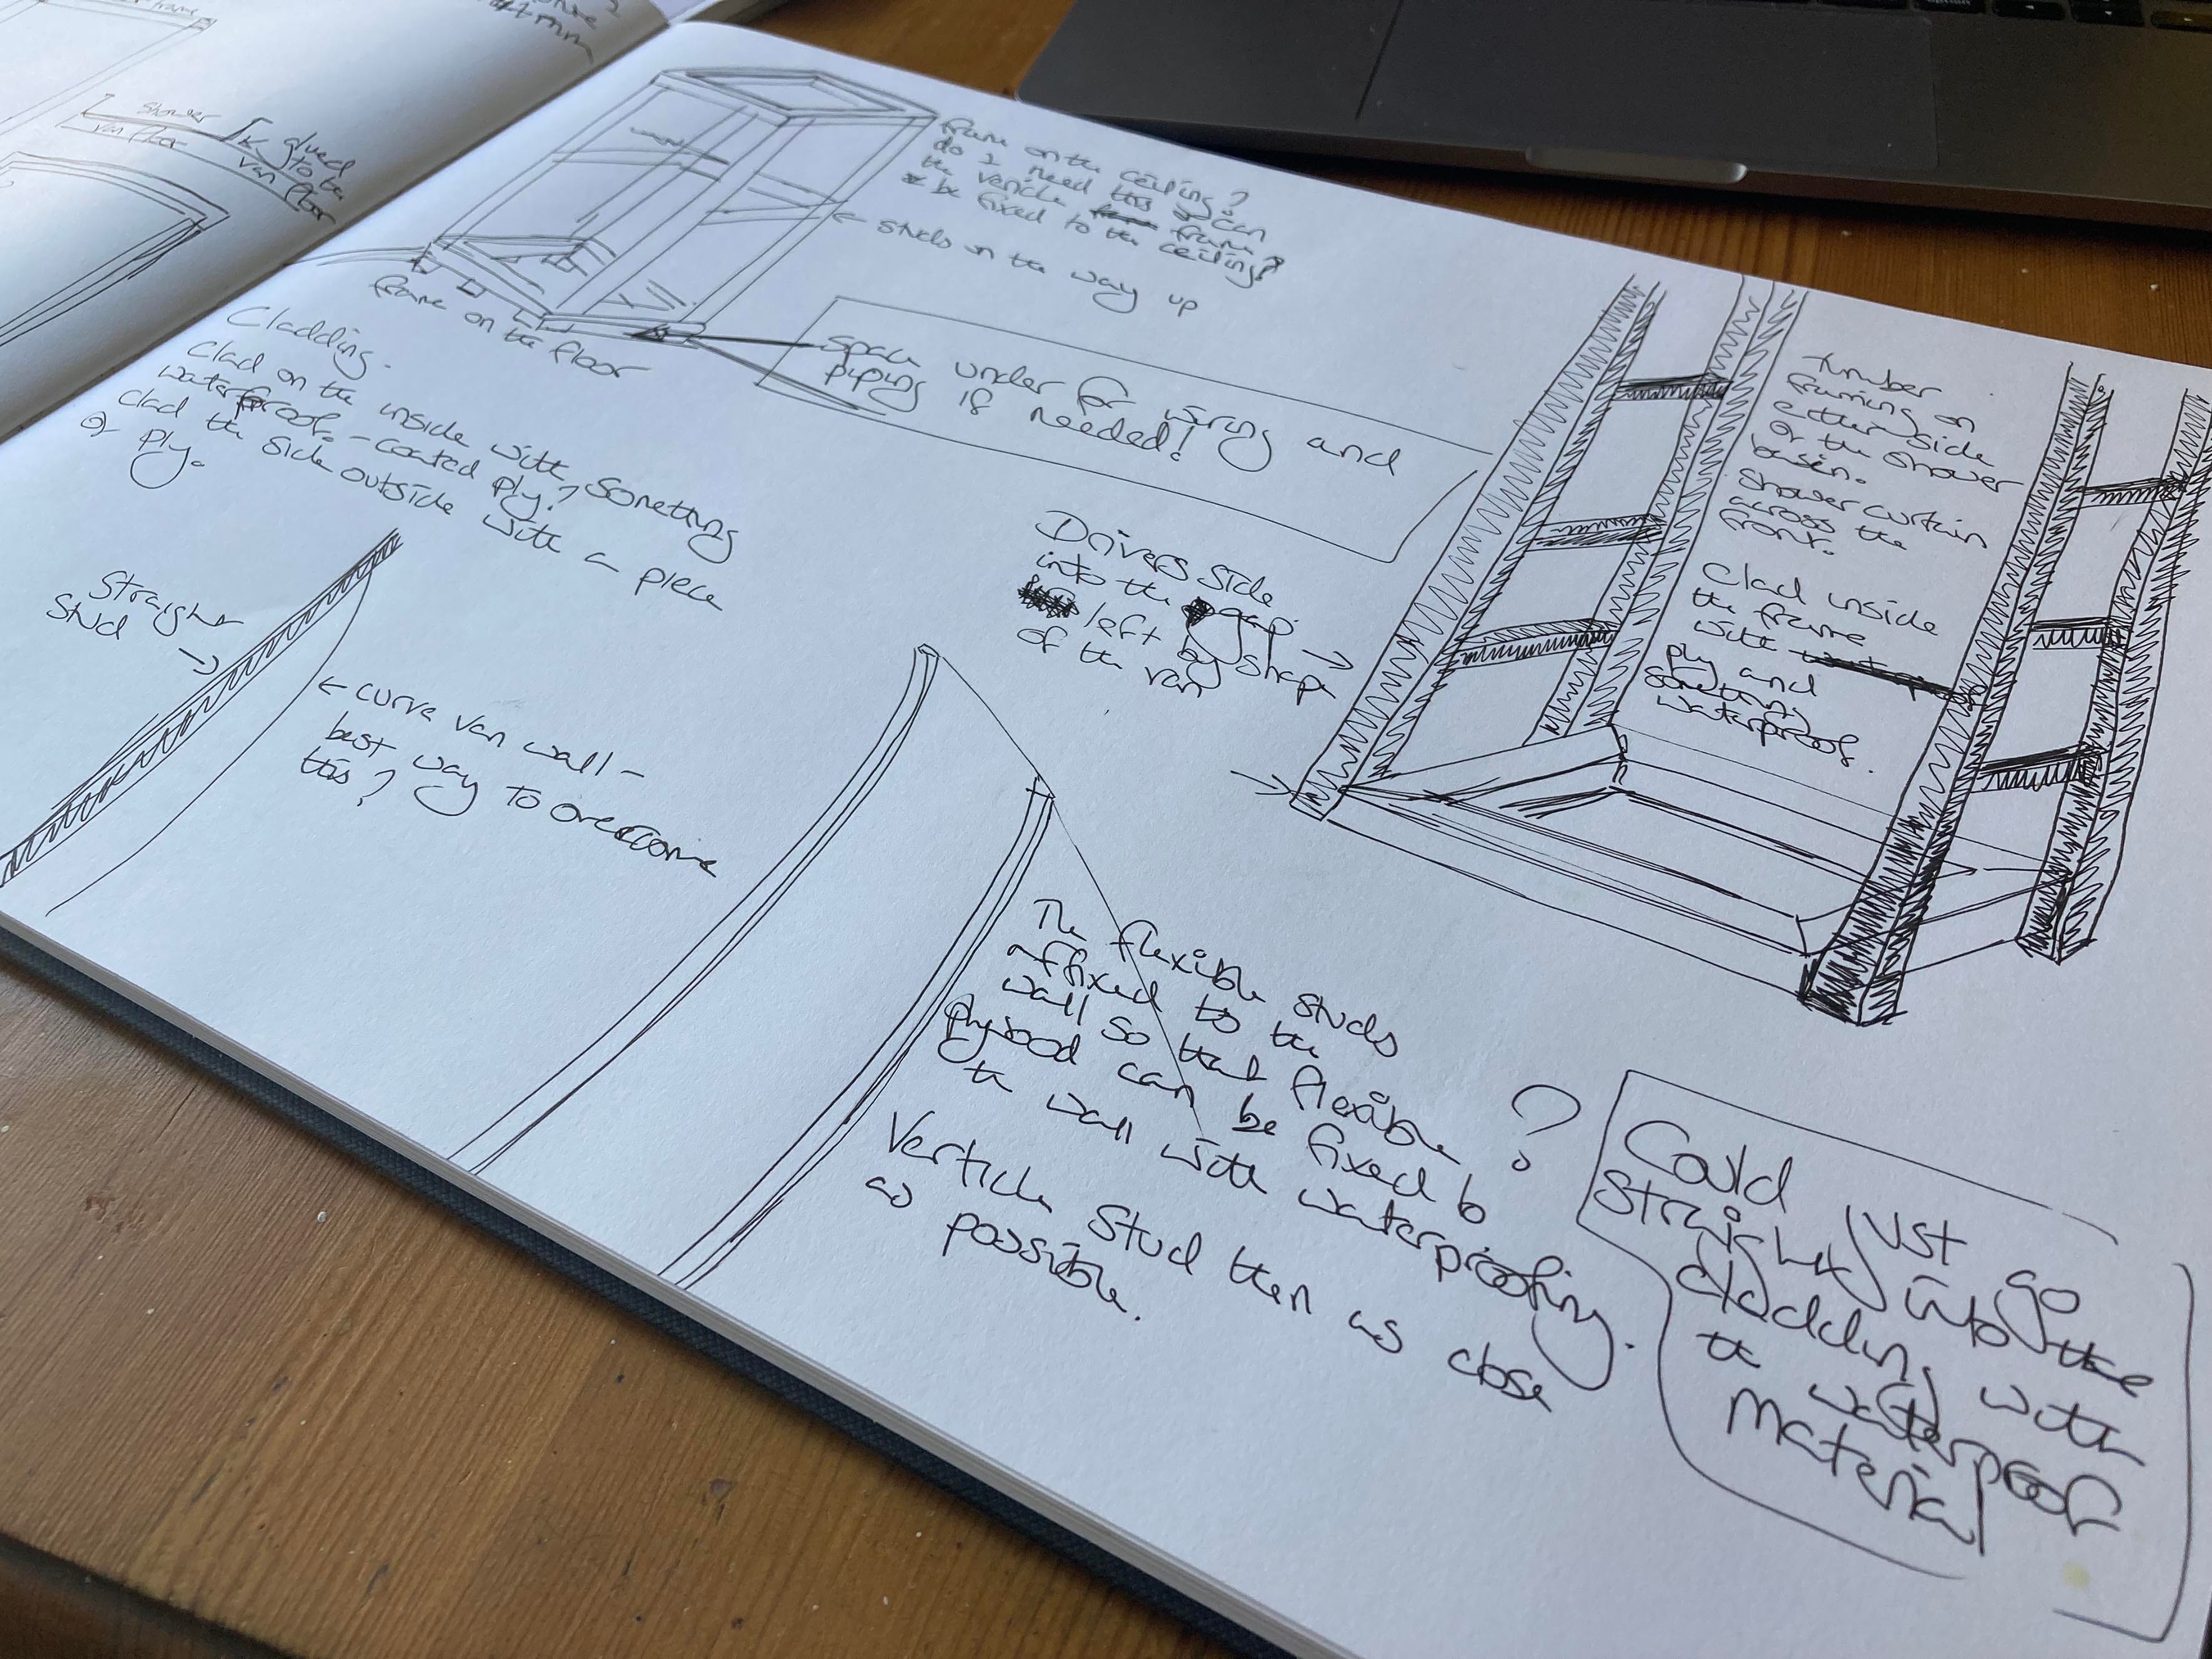 Shower
van floor
glued
to the
van floor
frame on the ceiling?
do I need this or can
the verticle frame
be fixed to the ceiling?
← studs on the way up
frame on the floor
space under for wiring and
piping if needed!
Cladding.
Clad on the inside with something
waterproof - coated ply?
clad the side outside with a piece
of ply.
Straight
stud →
← curve van wall -
best way to overcome
this?
Drivers side
into the gap →
left by shape
of the van
Timber
framing on
either side
of the shower
basin.
Shower curtain
across the
front.
Clad inside
the frame
with
ply and
something
waterproof.
The flexible studs
affixed to the
wall so that flexible
plywood can be fixed to
the wall with waterproofing.
?
Verticle stud then as close
as possible.
Could just go
straight into the
cladding with
the waterproof
material